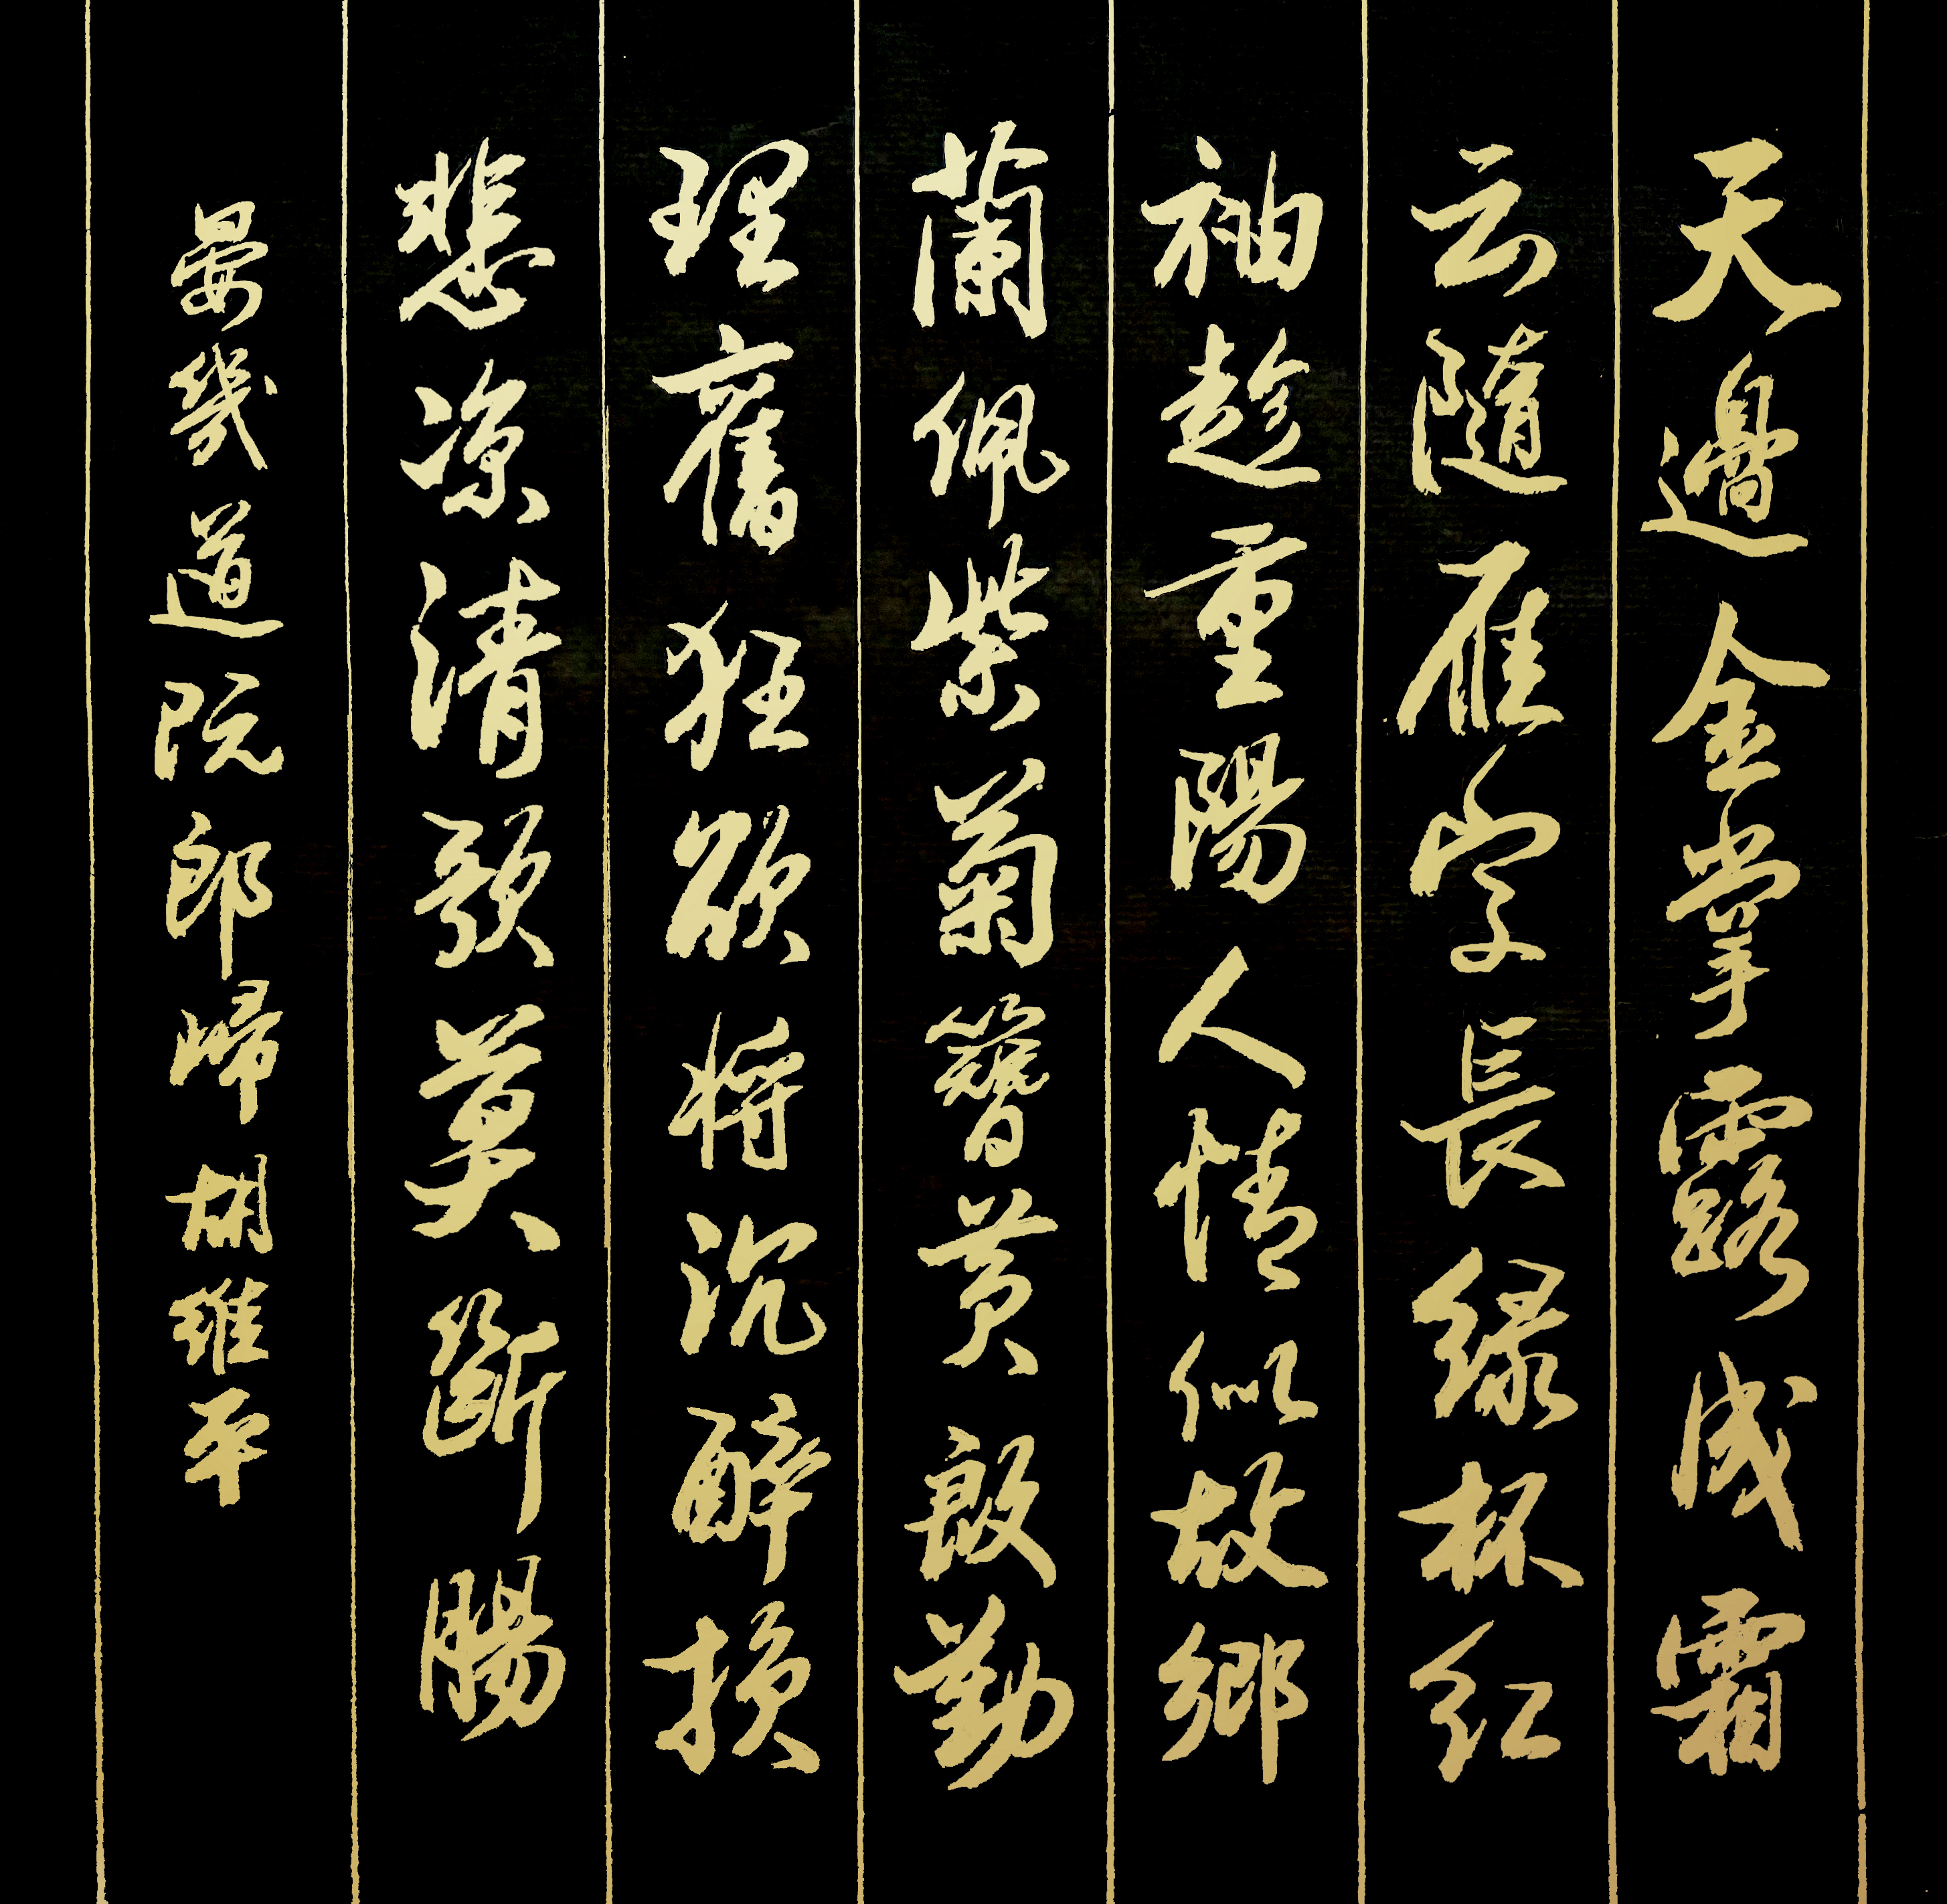 天邊金掌露成霜
云隨雁字長緑杯紅
袖趁重陽人情似故鄉
蘭佩紫菊簪黄殷勤
理舊狂欲將沉醉換
悲凉清歌莫斷腸
晏幾道阮郎歸胡維平